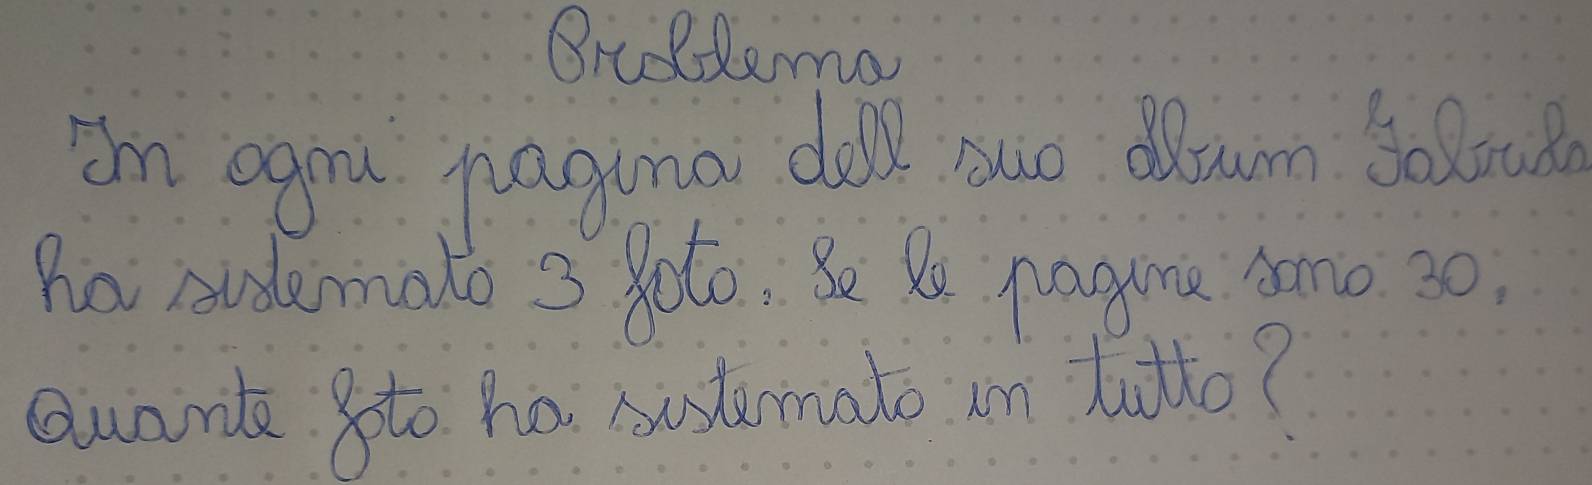 Problema
In ogni pagina dell suo album Fabrida
ha sistemato 3 foto. Se le pagine sono 30,
Quante foto ha sistemato in tutto?